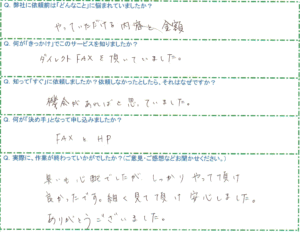 Q. 弊社に依頼前は「どんなこと」に悩まれていましたか？
やっていただける内容と、金額
Q. 何が「きっかけ」でこのサービスを知りましたか？
ダイレクトFAXを頂いていました。
Q. 知って「すぐ」に依頼しましたか？依頼しなかったとしたら、それはなぜですか？
機会があればと思っていました。
Q. 何が「決め手」となって申し込みましたか？
FAXとHP
Q. 実際に、作業が終わっていかがでしたか？（ご意見・ご感想などお聞かせください。）
臭いも心配でしたが しっかりやって頂け
良かったです。細く見て頂け安心しました。
ありがとうございました。